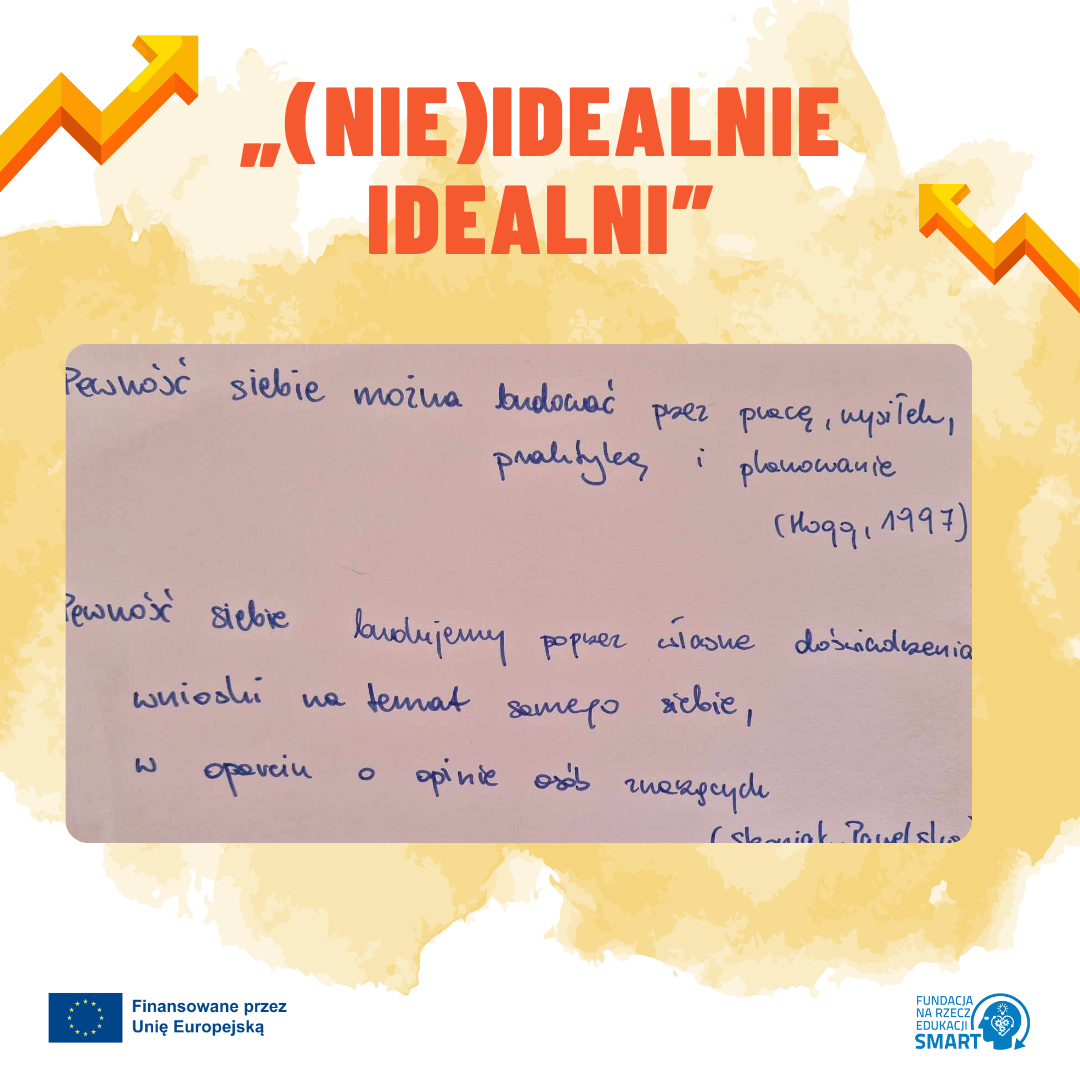 „(NIE)IDEALNIE
IDEALNI”
Pewność siebie można budować przez pracę, wysiłek,
praktykę i planowanie
(Hogg, 1997)
Pewność siebie budujemy poprzez własne doświadczenia
wnioski na temat samego siebie,
w oparciu o opinie osób znaczących
Finansowane przez
Unię Europejską
FUNDACJA
NA RZECZ
EDUKACJI
SMART